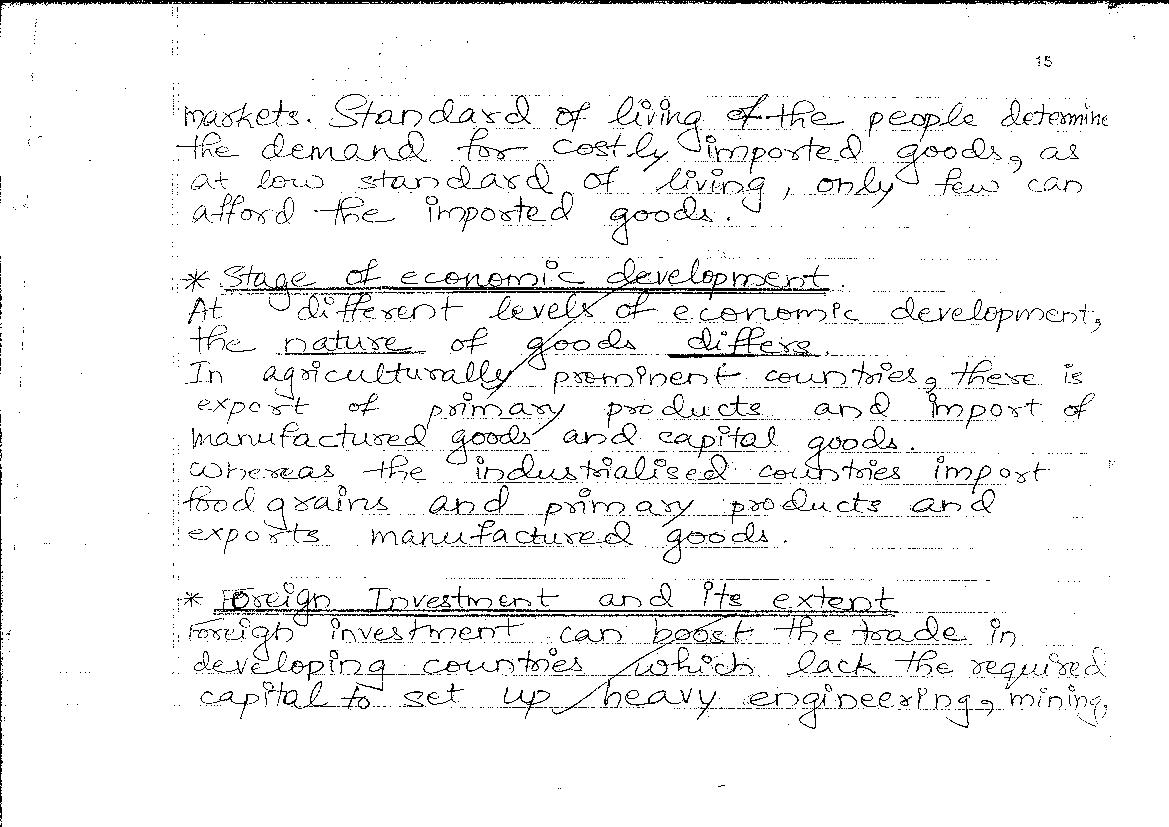 15
markets. Standard of living of the people determine
the demand for costly imported goods, as
at low standard of living, only few can
afford the imported goods.
* Stage of economic development.
At different levels of economic development,
the nature of goods differs.
In agriculturally prominent countries, there is
export of primary products and import of
manufactured goods and capital goods.
whereas the industrialised countries import
food grains and primary products and
exports manufactured goods.
* Foreign Investment and its extent
Foreign investment can boost the trade in
developing countries which lack the required
capital to set up heavy engineering, mining,